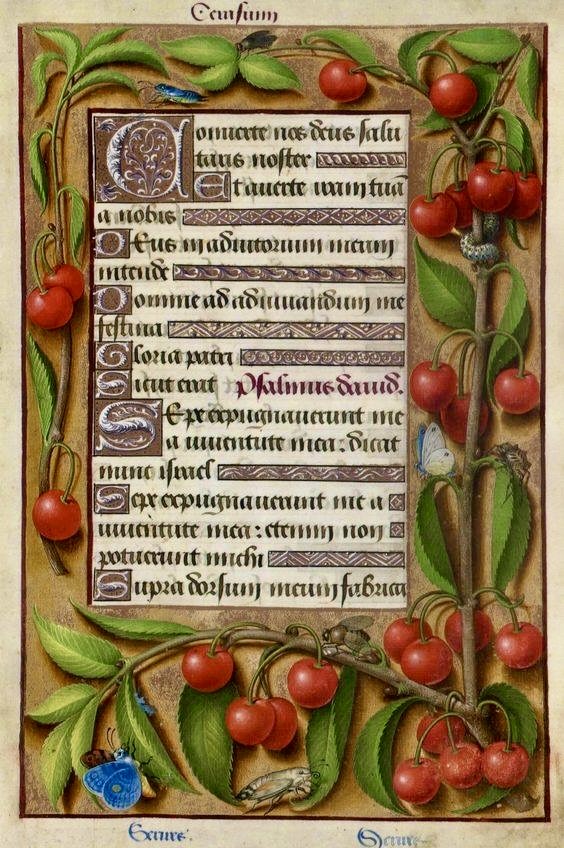 Cerasum
Conuerte nos deus salu
taris noster
Et auerte iram tuā
a nobis
Deus in adiutorium meum
intende
Domine ad adiuuandum me
festina
Gloria patri
Sicut erat Psalmus dauid.
Sepe expugnauerunt me
a iuuentute mea: dicat
nunc israel
Sepe expugnauerunt me a
iuuentute mea: etenim non
potuerunt michi
Supra dorsum meum fabrica